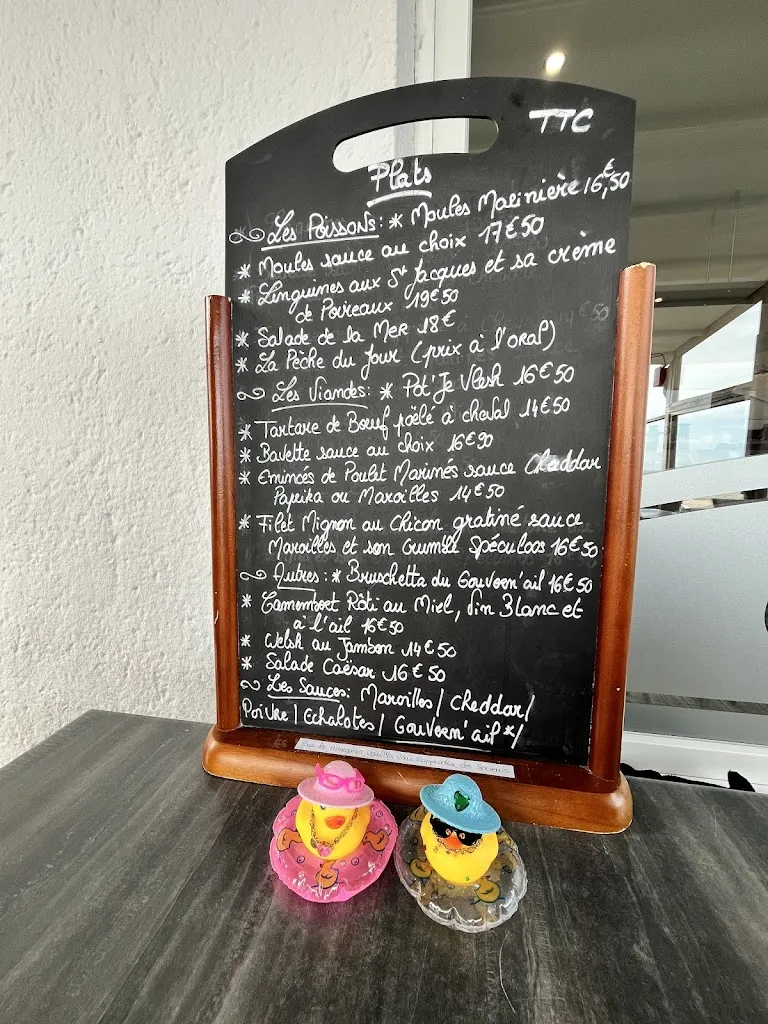 TTC
Plats
Les Poissons: * Moules Marinière 16,50€
* Moules sauce au choix 17€50
* Linguines aux St Jacques et sa crème
de Poireaux 19€50
* Salade de la Mer 18€
* La Pêche du Jour (prix à l'oral)
Les Viandes: * Pot'Je Vlesh 16€50
* Tartare de Bœuf poêlé à cheval 14€50
* Bavette sauce au choix 16€90
* Emincés de Poulet Marinés sauce Cheddar
Paprika ou Maroilles 14€50
* Filet Mignon au Chicon gratiné sauce
Maroilles et son Crumble Spéculoos 16€50
Autres: * Bruschetta du Gouvern'ail 16€50
* Camembert Rôti au Miel, Vin Blanc et
à l'ail 16€50
* Welsh au Jambon 14€50
* Salade Caësar 16€50
Les Sauces: Maroilles / Cheddar /
Poivre / Echalotes / Gouvern'ail* /